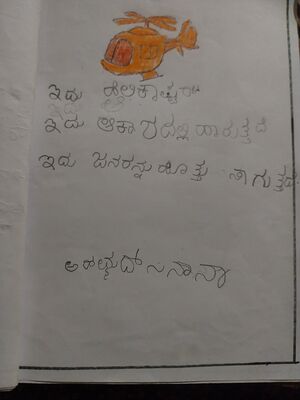 ಇದು ಹೆಲಿಕಾಪ್ಟರ್
ಇದು ಆಕಾಶದಲ್ಲಿ ಹಾರುತ್ತದೆ
ಇದು ಜನರನ್ನು ಹೊತ್ತು ಸಾಗುತ್ತದೆ